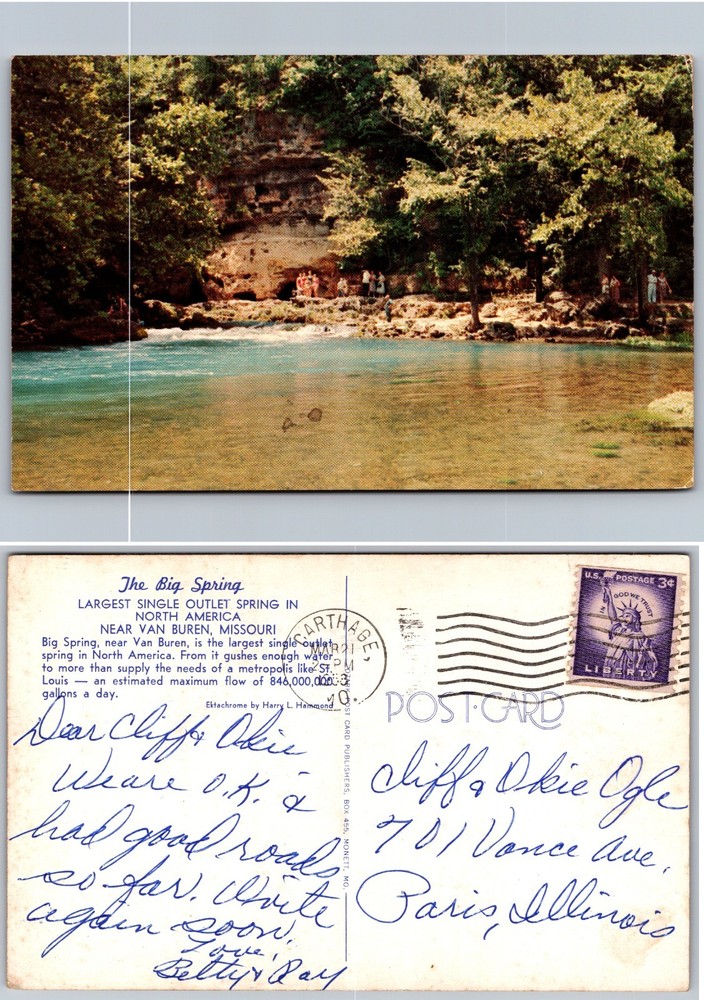 The Big Spring
LARGEST SINGLE OUTLET SPRING IN
NORTH AMERICA
NEAR VAN BUREN, MISSOURI
Big Spring, near Van Buren, is the largest single outlet
spring in North America. From it gushes enough water
to more than supply the needs of a metropolis like St.
Louis — an estimated maximum flow of 846,000,000
gallons a day.
Ektachrome by Harry L. Hammond
Dear Cliff & Okie
We are O.K. &
had good roads
so far. Write
again soon.
Love,
Betty & Ray
POST CARD PUBLISHERS, BOX 455, MONETT, MO.
CARTHAGE,
MAR 21
PM
MO.
U.S. POSTAGE 3¢
IN GOD WE TRUST
LIBERTY
POST CARD
Cliff & Okie Ogle
701 Vance Ave.
Paris, Illinois